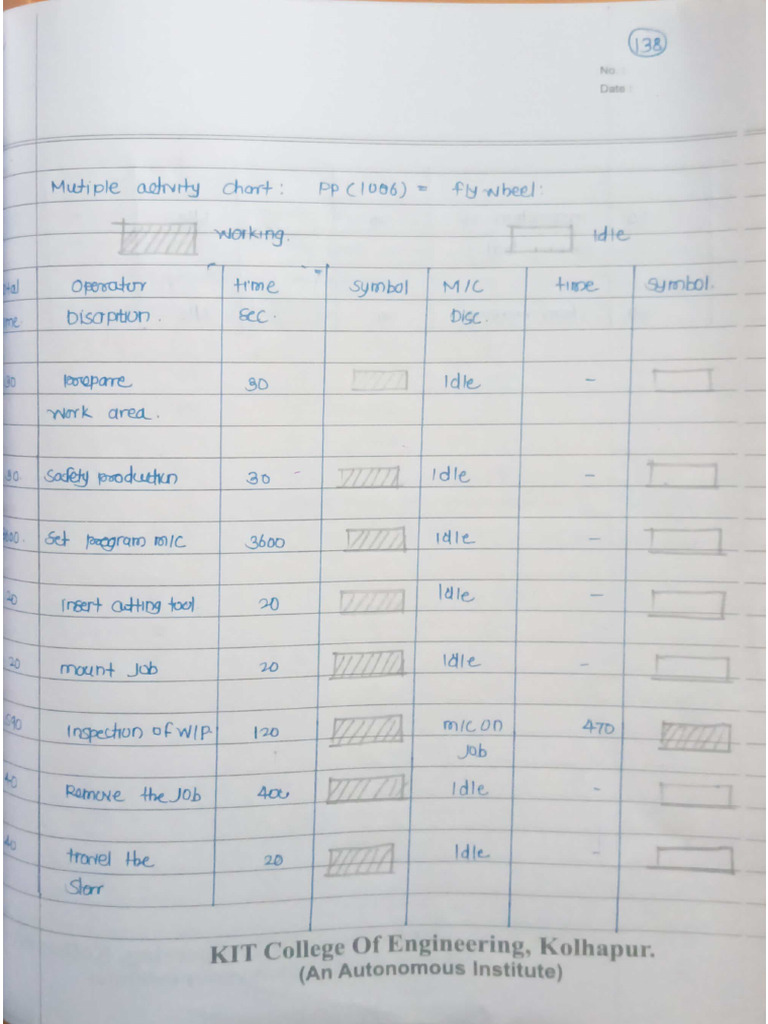 138
No. :
Date :
Mutiple activity chart : PP (1006) = flywheel :
Working. Idle
Operator time symbol M/C time symbol.
Discription. sec. Disc.
30 prepare 30 Idle -
work area.
30. Safety production 30 - Idle -
Set program m/c 3600 Idle -
20 Insert cutting tool 20 Idle -
20 mount Job 20 Idle -
590 Inspection of WIP 120 m/c on 470
Job
40 Remove the Job Idle -
40 travel the 20 Idle -
KIT College Of Engineering, Kolhapur.
(An Autonomous Institute)